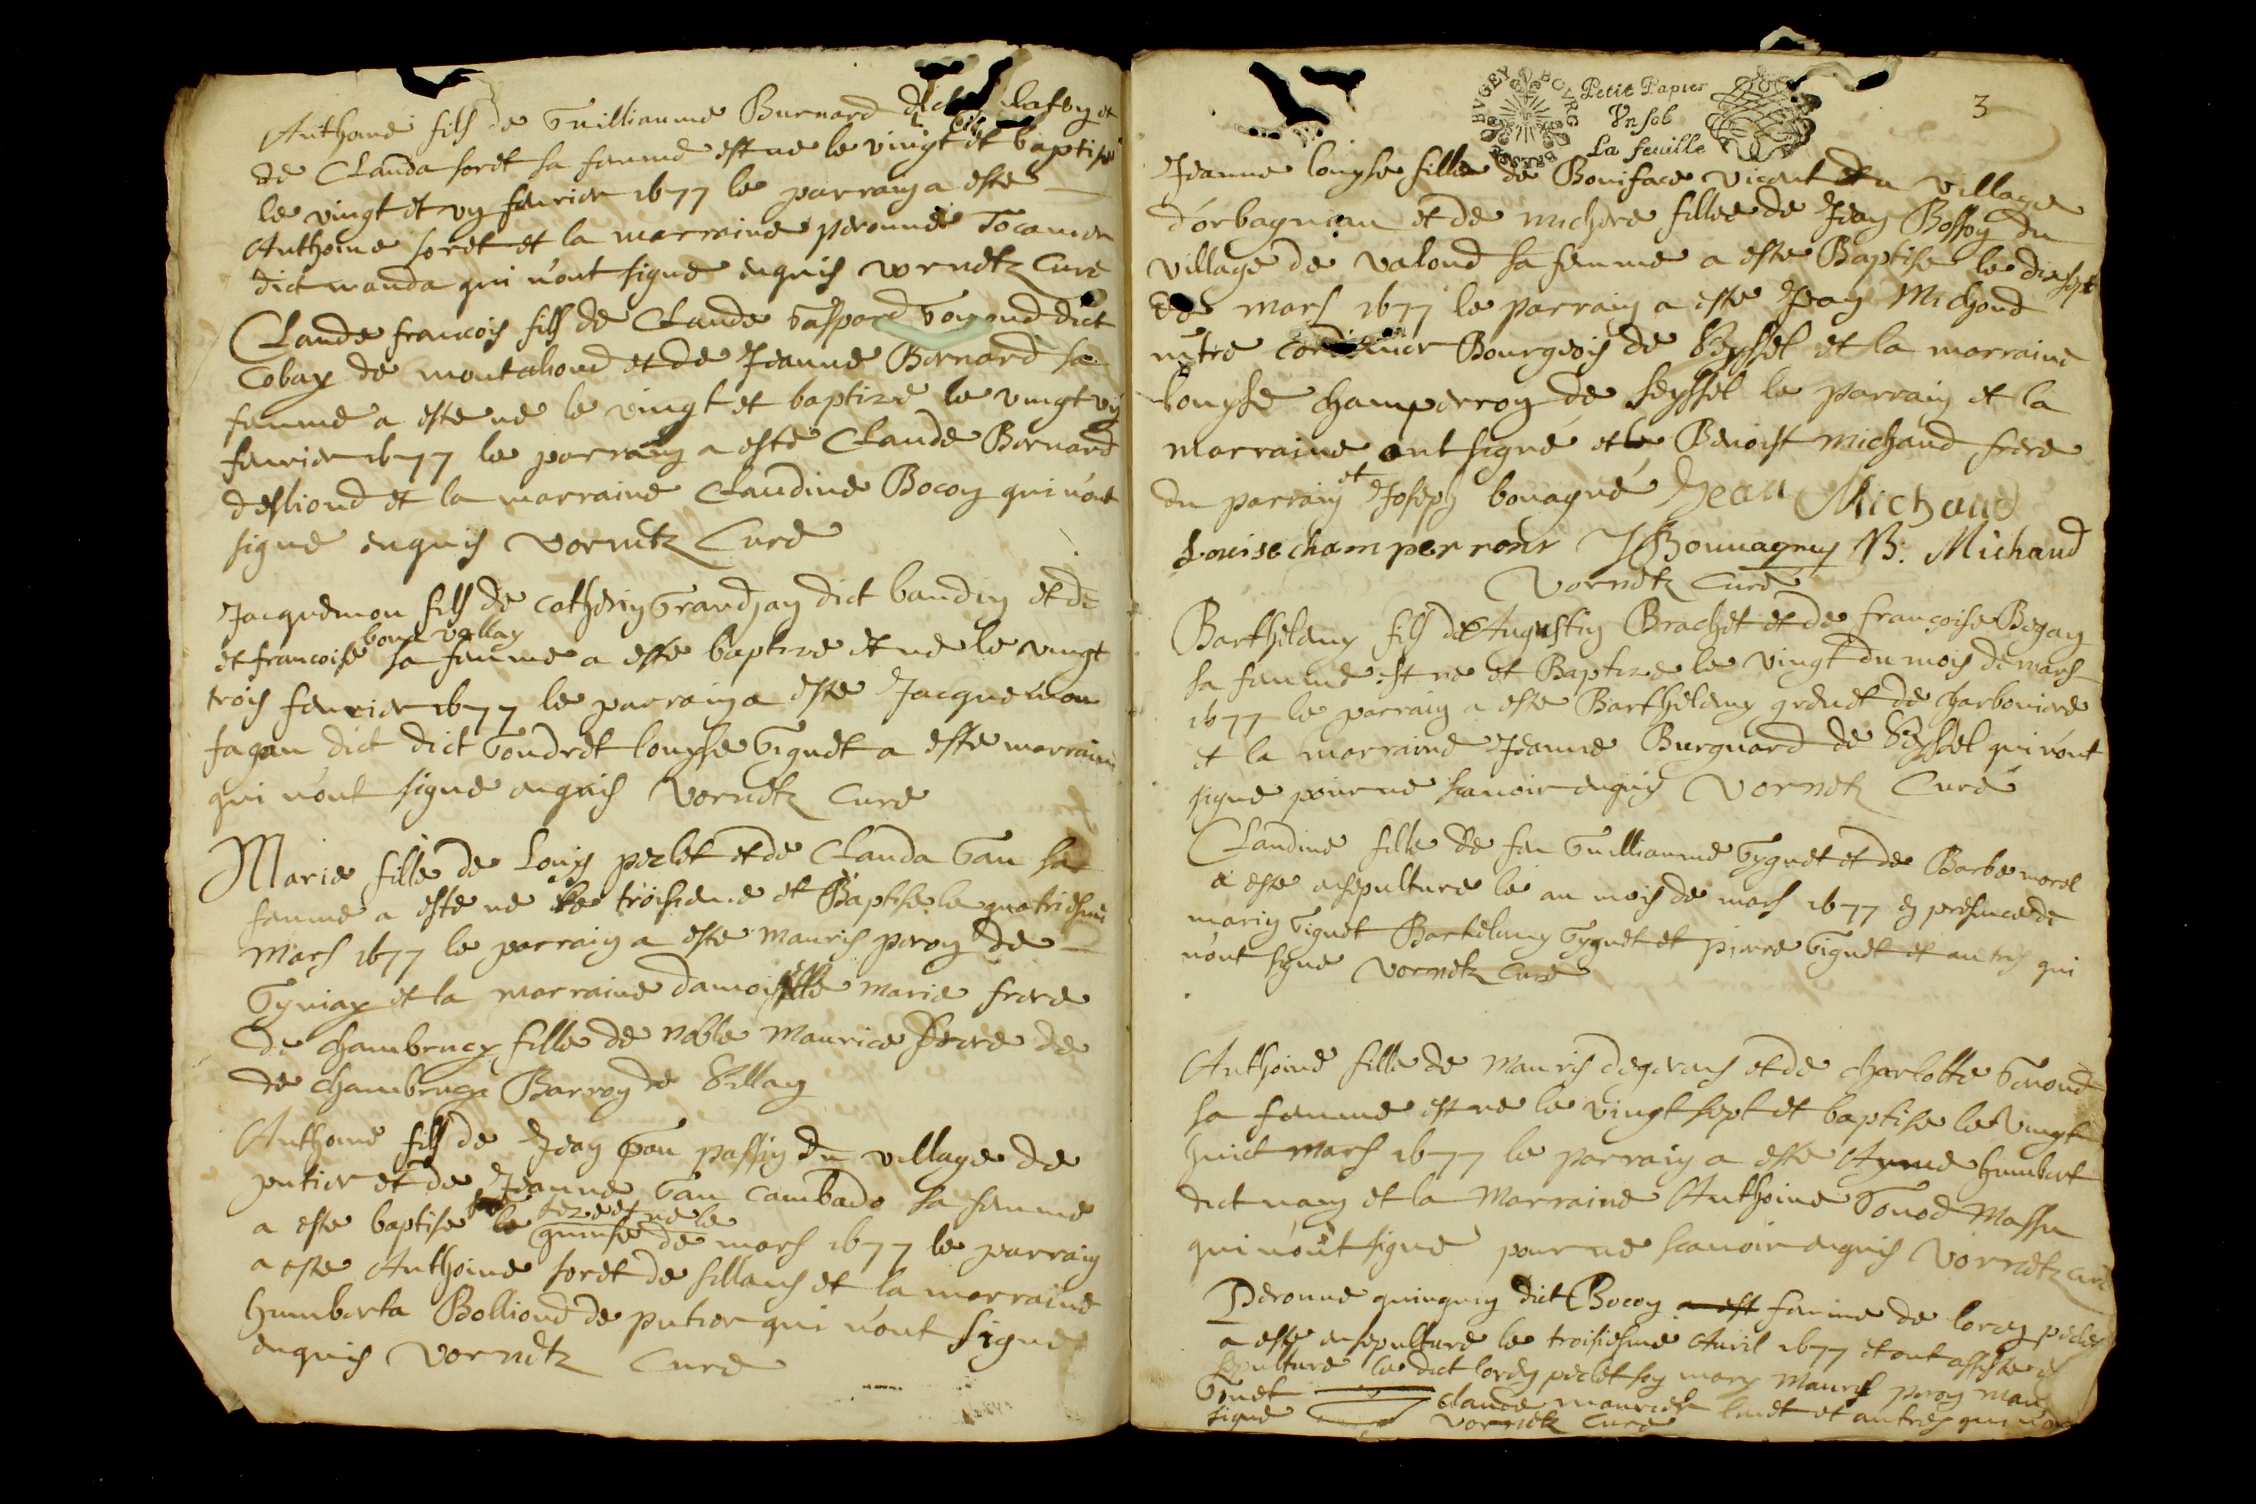 Anthoine fils de Guilliaume Burnard dict lafoy et
de Clauda soret sa femme est ne le vingt et baptise
le vingt et vn feurier 1677 le parrain a este
Anthoine soret et la marraine peronne Tocanier
dict manda qui n'ont signe enquis vornetz Cure
Claude francois fils de Claude Gaspard Gonond dict
Cobax de montahoud et de Jeanne Bernard sa
femme a este ne le vingt et baptize le vingt vn
feurier 1677 le parrain a este Claude Bernard
desliond et la marraine Claudine Bocon qui n'ont
signe enquis Vornetz Cure
Jacquemon fils de Catherin Grandjan dict baudin et de
bonvallay
et francoise sa femme a este baptize et ne le vingt
trois feurier 1677 le parrain a este Jacquemon
fagan dict dict Gondret louyse Giguet a este marraine
qui n'ont signe enquis Vornetz Cure
Marie fille de Louys peclet et de Clauda Gau sa
femme a este ne le troisieme et Baptise le quatriesme
Mars 1677 le parrain a este mauris peron de
Gyniax et la marraine damoiselle marie frere
de chambrucy fille de noble Maurice frere de
de chambrucy Barron de Sillan
Anthoine fils de Jean Gau passin du village de
putier et de Jeanne Gau Cambado sa femme
seze et ne le
a este baptise le quinse de mars 1677 le parrain
a este Anthoine soret de sillans et la marraine
humberta Bolliond de putier qui n'ont signe
enquis Vornetz Cure
BVGEY BOVRG BRESSE
Petit Papier
Vn sol
La feuille
3
Jeanne louyse fille de Boniface vicent du village
d'orbagnian et de michere fillee de Jean Bosson du
village de valond sa femme a este Baptise le diesept
de mars 1677 le parrain a este Jean Michoud
mtre cordanier Bourgeois de Seyssel et la marraine
louyse champerroy de seyssel le parrain et la
marraine ont signé et le Benoist michaud frere
du parrain et Joseph bonagné Jean Michaud
Louise champerront J Bonnagny B. Michaud
Vornetz Curé
Barthelemy fils de Augustin Brachet et de françoise Began
sa femme est ne et Baptize le vingt du mois de mars
1677 le parrain a este Barthelemy grenet de charboniere
et la marraine Jeanne Burgnard de Seyssel qui n'ont
signe pour ne scauoir enquis Vornetz Curé
Claudine fille de feu Guilliaume Gyguet et de Barbe morel
a este ensepulture le au mois de mars 1677 en presence de
marin Giguet Barthelemy Gyguet et pierre Giguet et autres qui
n'ont signe Vornetz Cure
Anthoine fille de Mauris degerans et de charlotte Gonond
sa femme est ne le vingt sept et baptise le vingt
huict mars 1677 le parrain a este Ayme humbert
dict nan et la Marraine Anthoine Gonod Massu
qui n'ont signe pour ne scauoir enquis Vornetz cure
Peronne quinquin dict Bocon a est femme de loren peclet
a este ensepulture le troisiesme Auril 1677 et ont assiste a
sepulture le dict loren peclet son mary Mauris peron
Ginet claude mauriel linet et autres qui n'ont
signe Vornetz Cure